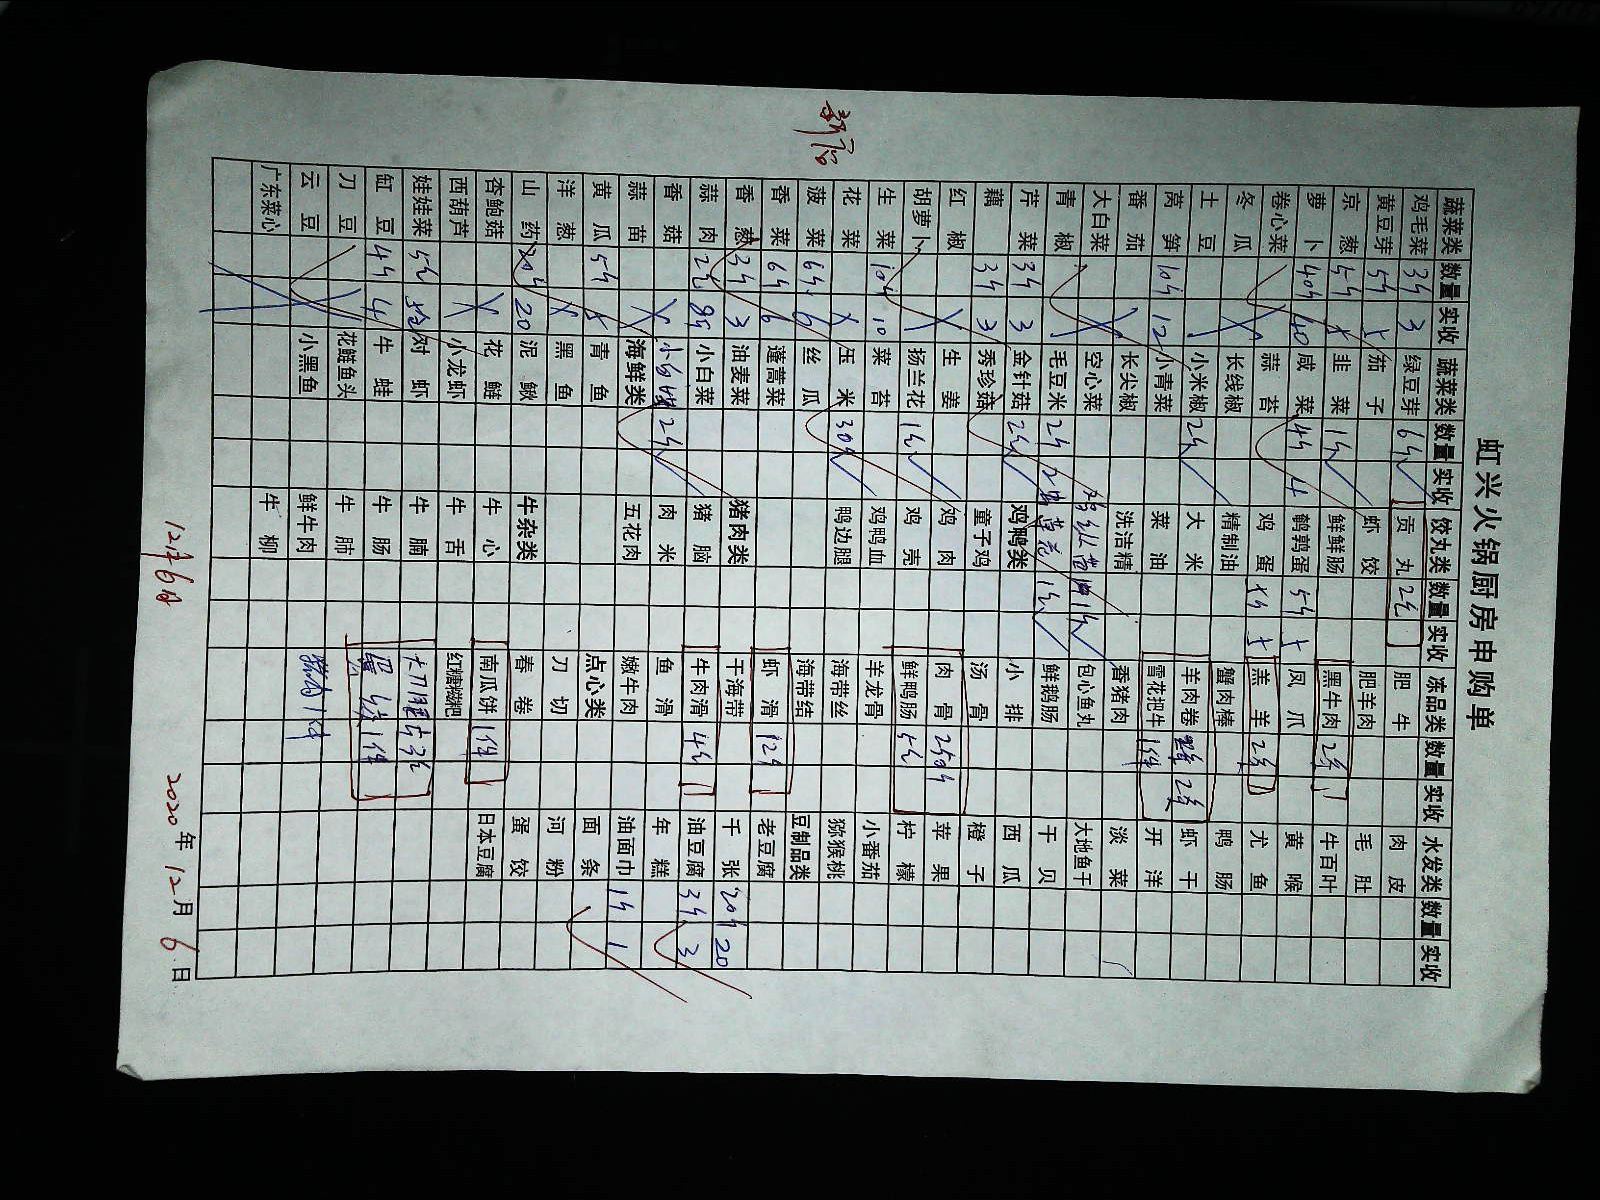 虹兴火锅厨房申购单
新店
蔬菜类 数量 实收 蔬菜类 数量 实收 饺丸类 数量 实收 冻品类 数量 实收 水发类 数量 实收
鸡毛菜 3斤 3 绿豆芽 6斤 贡丸 2包 肥牛 肉皮
黄豆芽 5斤 5 茄子 虾饺 肥羊肉 毛肚
京葱 5斤 5 韭菜 1斤 鲜鲜肠 黑牛肉 2条 牛百叶
萝卜 40斤 40 咸菜 4斤 4 鹌鹑蛋 5斤 5 凤爪 黄喉
卷心菜 蒜苔 鸡蛋 羔羊 2条 尤鱼
冬瓜 长线椒 精制油 蟹肉棒 鸭肠
土豆 小米椒 2斤 大米 羊肉卷 虾干
莴笋 10斤 12 小青菜 菜油 雪花把牛 1件 开洋
番茄 长尖椒 洗洁精 香猪肉 淡菜
大白菜 空心菜 包心鱼丸 大地鱼干
青椒 毛豆米 2斤 1斤 鲜鹅肠 干贝
芹菜 3斤 3 金针菇 2斤 鸡鸭类 小排 西瓜
藕 3斤 3 秀珍菇 童子鸡 汤骨 橙子
红椒 生姜 鸡肉 肉骨 苹果
胡萝卜 扬兰花 1斤 鸡壳 鲜鸭肠 5斤 柠檬
生菜 10斤 10 菜苔 鸡鸭血 羊龙骨 小番茄
花菜 玉米 30斤 鸭边腿 海带丝 猕猴桃
菠菜 6斤 6 丝瓜 海带结 豆制品类
香菜 6斤 6 蓬蒿菜 虾滑 12斤 老豆腐
香葱 3斤 3 油麦菜 猪肉类 干海带 千张 20斤 20
蒜肉 2斤 小白菜 猪脑 牛肉滑 4斤 油豆腐 3斤 3
香菇 2斤 肉米 鱼滑 年糕
蒜苗 海鲜类 五花肉 嫩牛肉 油面巾 1斤 1
黄瓜 5斤 5 青鱼 点心类 面条
洋葱 黑鱼 刀切 河粉
山药 20斤 20 泥鳅 牛杂类 春卷 蛋饺
杏鲍菇 花鲢 牛心 南瓜饼 1件 日本豆腐
西葫芦 小龙虾 牛舌 红糖糍粑
娃娃菜 5斤 对虾 牛腩
缸豆 4斤 4 牛蛙 牛肠 1件
刀豆 花鲢鱼头 牛肺
云豆 小黑鱼 鲜牛肉
广东菜心 牛柳
12月6日 2020年12月6日